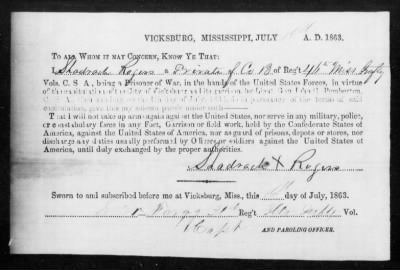 VICKSBURG, MISSISSIPPI, JULY A. D. 1863.
TO ALL WHOM IT MAY CONCERN, KNOW YE THAT:
I Shadrach Rogers a Private of Co B of Reg't 46th Miss
Vols. C. S. A., being a Prisoner of War, in the hands of the United States Forces, in virtue
of the capitulation of the City of Vicksburg and its garrison, by Lieut. Gen. John C. Pemberton,
C. S. A., Commanding, on the 4th day of July, 1863, do in pursuance of the terms of said
capitulation, give this my solemn parole under oath
That I will not take up arms again against the United States, nor serve in any military, police,
or constabulary force in any Fort, Garrison or field work, held by the Confederate States of
America, against the United States of America, nor as guard of prisons, depots or stores, nor
discharge any duties usually performed by Officers or soldiers against the United States of
America, until duly exchanged by the proper authorities.
Shadrach X Rogers
Sworn to and subscribed before me at Vicksburg, Miss., this day of July, 1863.
Reg't Vol.
Capt AND PAROLING OFFICER.